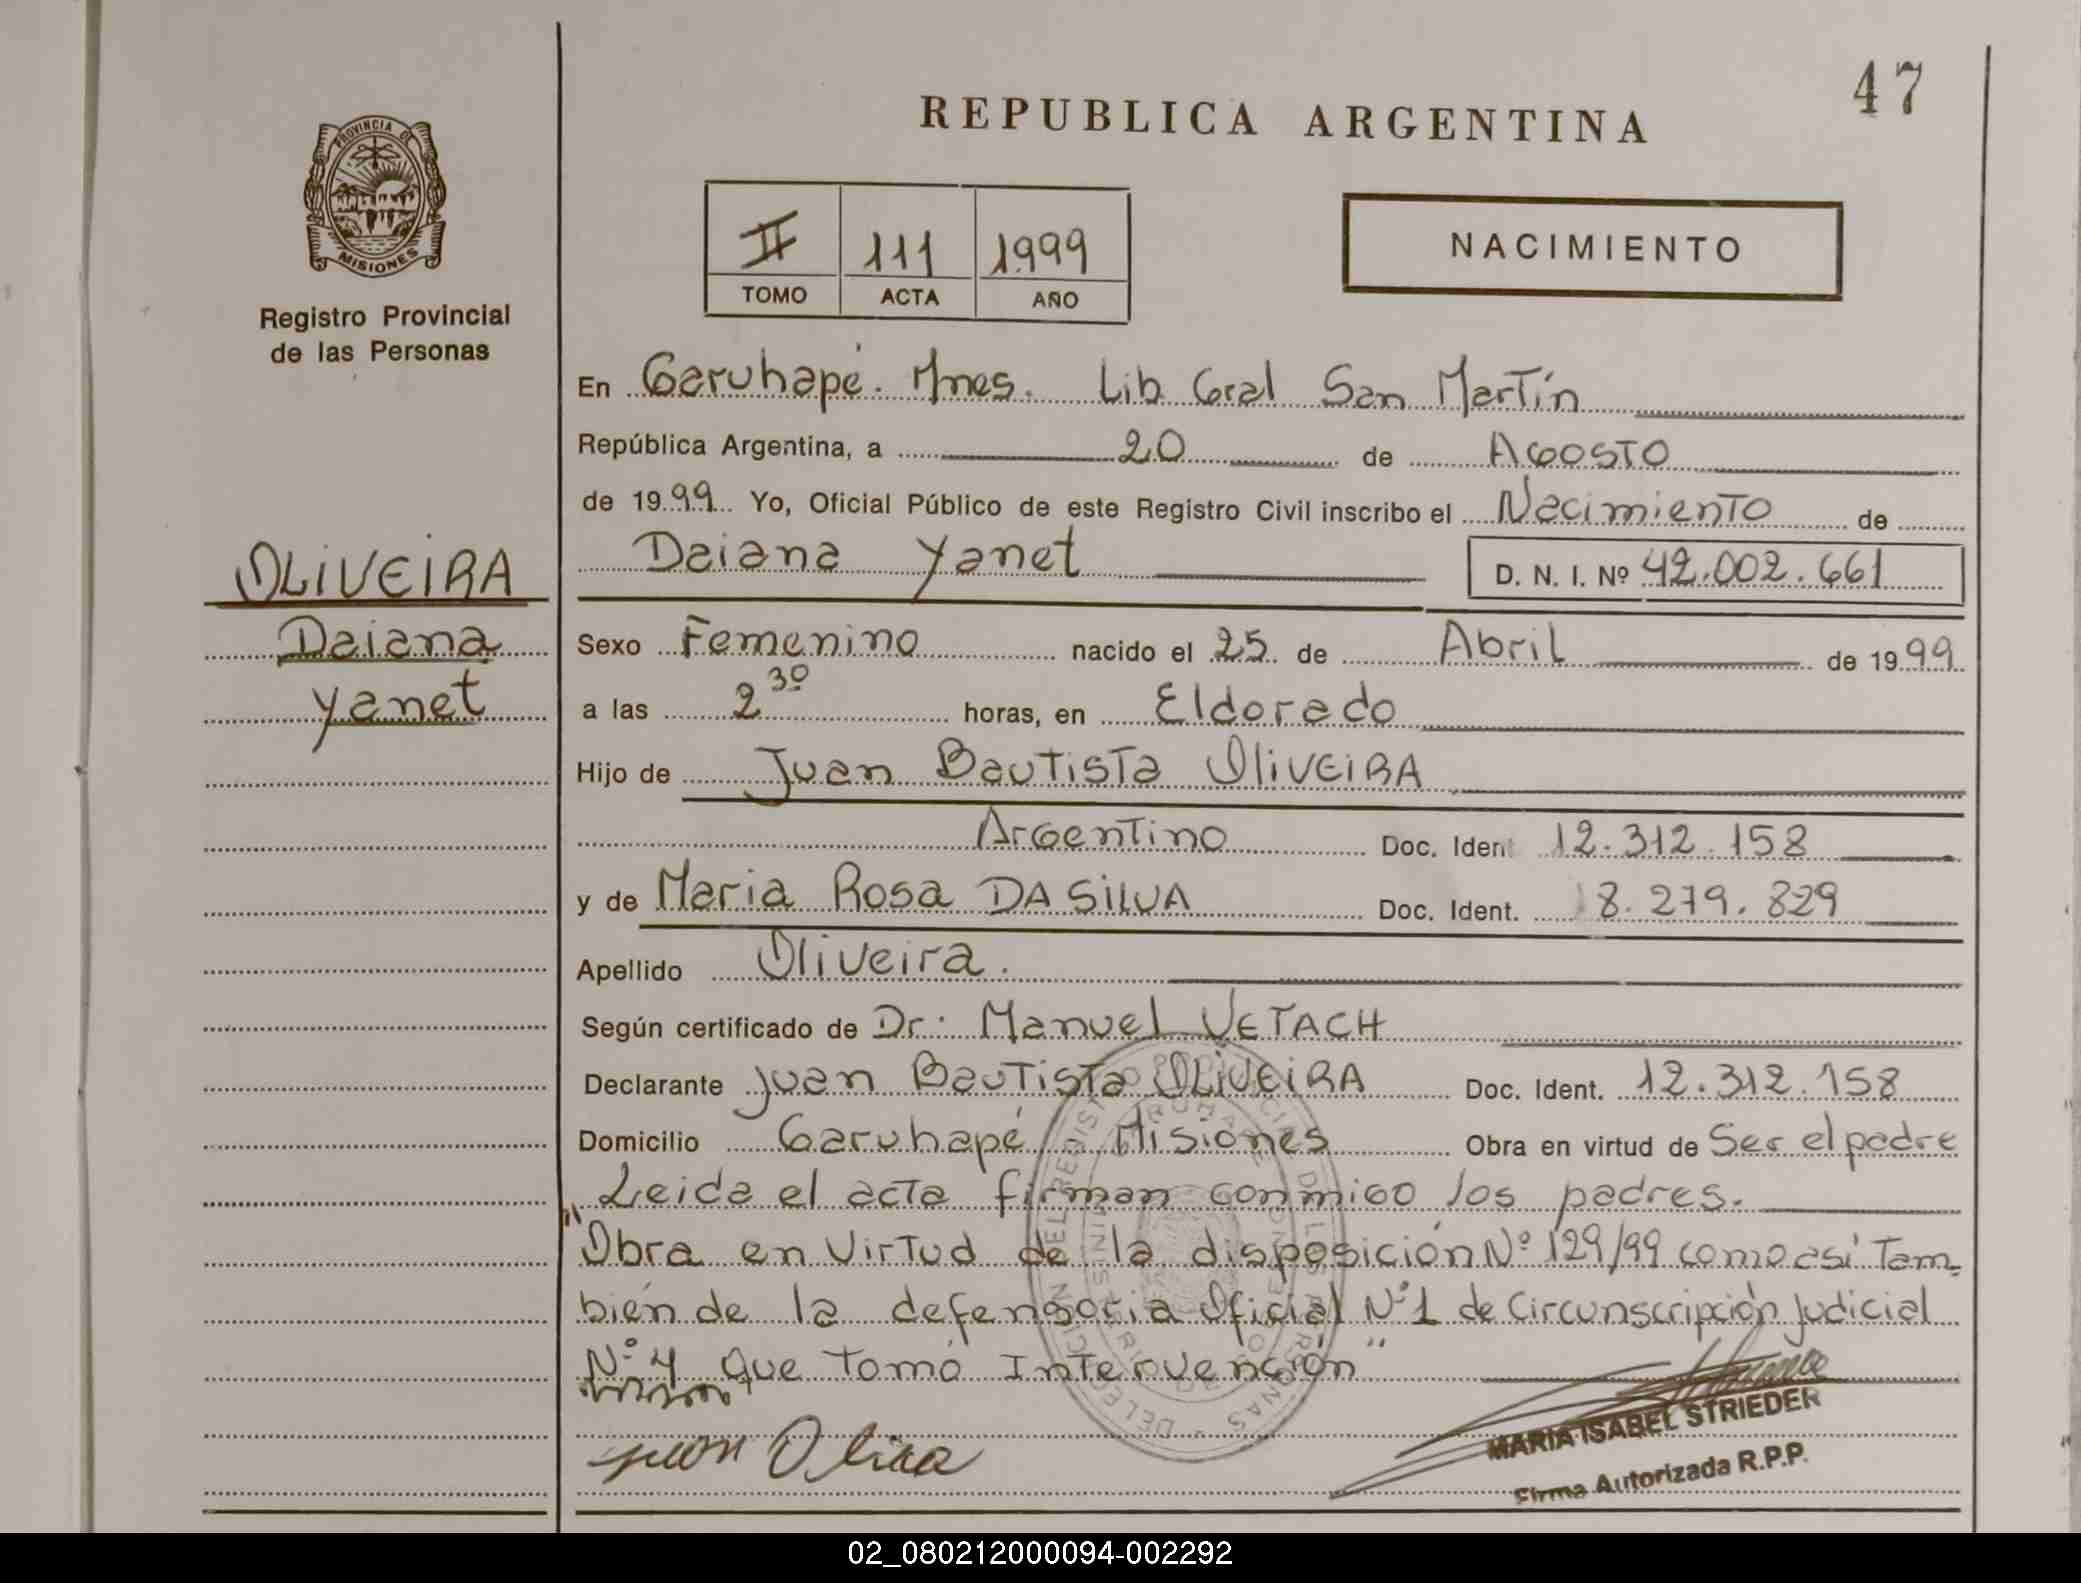 47
REPUBLICA ARGENTINA
PROVINCIA DE
MISIONES
Registro Provincial
de las Personas
II 111 1999
TOMO ACTA AÑO
NACIMIENTO
En Garuhapé. Mnes. Lib. Gral San Martín
República Argentina, a 20 de Agosto
de 1999 Yo, Oficial Público de este Registro Civil inscribo el Nacimiento de
Daiana Yanet D. N. I. Nº 42.002.661
OLIVEIRA
Daiana
Yanet
Sexo Femenino nacido el 25 de Abril de 1999
a las 2 30 horas, en Eldorado
Hijo de Juan Bautista OliVEIRA
Argentino Doc. Ident 12.312.158
y de Maria Rosa DA SILVA Doc. Ident. 18.279.829
Apellido Oliveira.
Según certificado de Dr. Manuel VETACH
Declarante Juan Bautista OLIVEIRA Doc. Ident. 12.312.158
Domicilio Garuhapé Misiones Obra en virtud de Ser el padre
Leida el acta firman conmigo los padres.
"Obra en Virtud de la disposición Nº 129/99 como así Tam-
bién de la defensoria Oficial Nº 1 de Circunscripción Judicial
Nº 4 que tomó Intervención"
MARIA ISABEL STRIEDER
Firma Autorizada R.P.P.
02_080212000094-002292